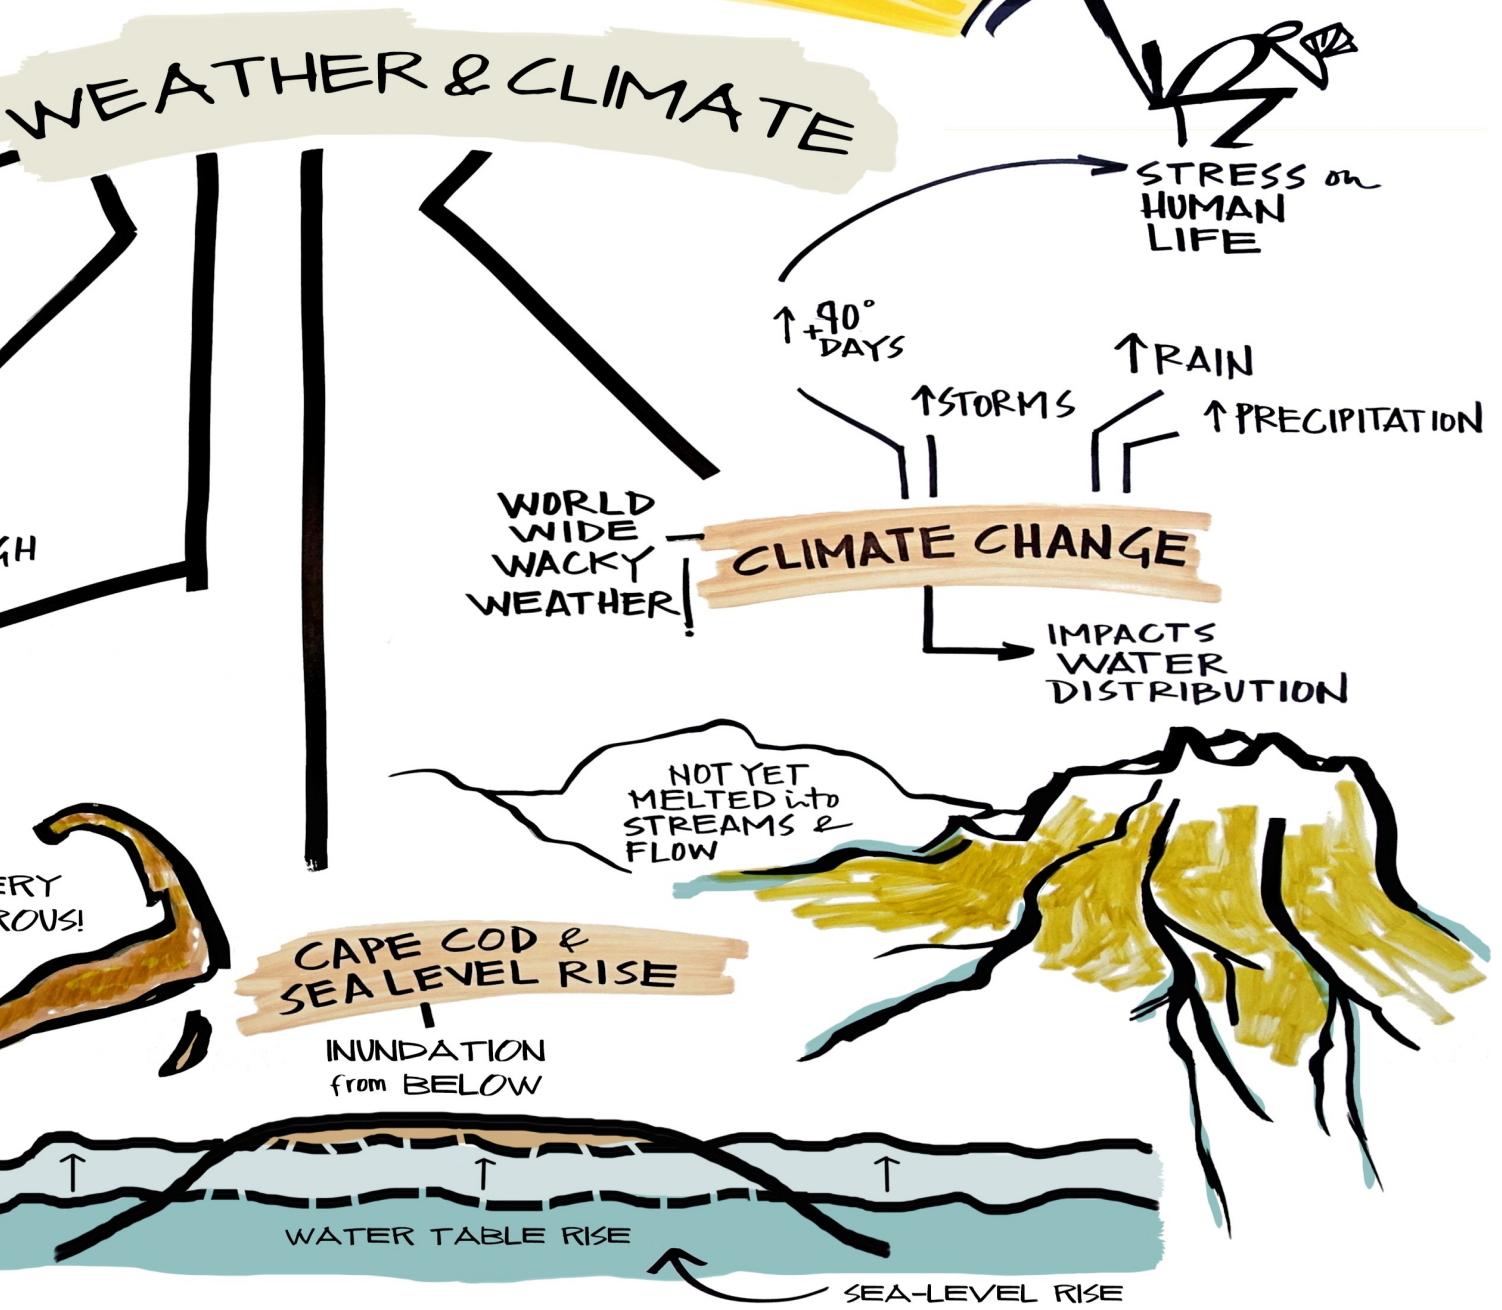 WEATHER & CLIMATE
STRESS on
HUMAN
LIFE
↑ +90°
DAYS
↑ STORMS
↑ RAIN
↑ PRECIPITATION
WORLD
WIDE
WACKY
WEATHER!
CLIMATE CHANGE
IMPACTS
WATER
DISTRIBUTION
GH
NOT YET
MELTED into
STREAMS &
FLOW
ERY
ROUS!
CAPE COD &
SEA LEVEL RISE
INUNDATION
from BELOW
WATER TABLE RISE
SEA-LEVEL RISE